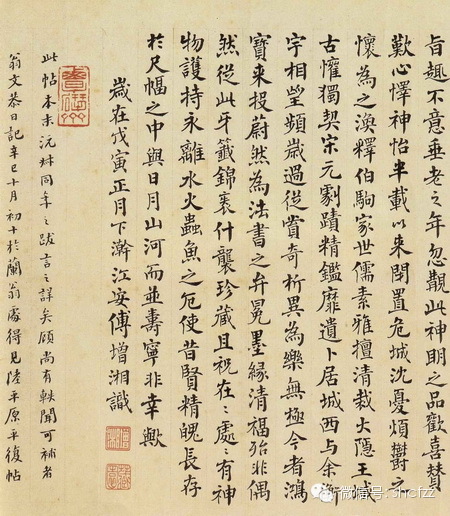 旨趣不意垂老之年忽覩此神明之品歡喜贊
歎心懌神怡半載以來閉置危城沈憂煩鬱之
懷為之渙釋伯駒家世儒素雅擅清裁大隱王城
古懽獨契宋元劇蹟精鑑靡遺卜居城西與余衡
宇相望頻歲過從賞奇析異為樂無極今者鴻
寶來投蔚然為法書之弁冕墨緣清福殆非偶
然從此牙籤錦裹什襲珍藏且祝在〻處〻有神
物護持永離水火蟲魚之厄使昔賢精魄長存
於尺幅之中與日月山河而並壽寧非幸歟
歲在戊寅正月下澣江安傅增湘識
此帖本末沅叔同年之跋言之詳矣顧尚有軼聞可補者
翁文恭日記辛巳十月初十於蘭翁處得見陸平原平復帖
微信号: shcfzz